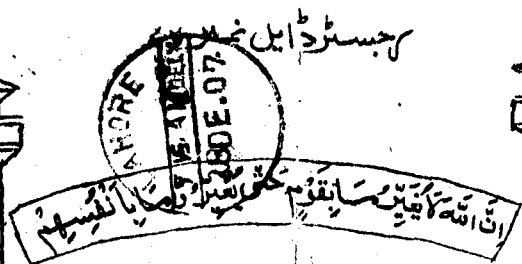 رجسٹرڈ ایل نمبر
LAHORE
DE.07
اِنَّ اللّٰهَ لَا يُغَيِّرُ مَا بِقَوْمٍ حَتّٰى يُغَيِّرُوْا مَا بِاَنْفُسِهِمْ